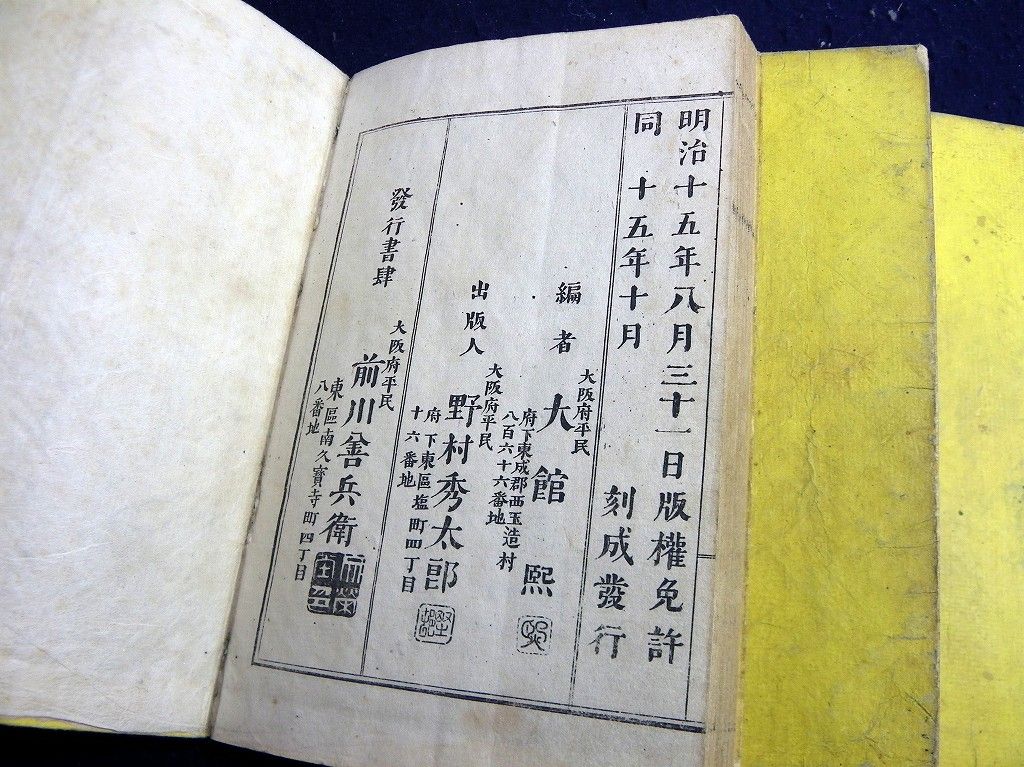 明治十五年八月三十一日版權免許
同　十五年十月　刻成發行
編者
大阪府平民
大館熙
府下東成郡西玉造村
八百六十六番地
出版人
大阪府平民
野村秀太郎
府下東區塩町四丁目
十六番地
發行書肆
大阪府平民
前川善兵衛
東區南久寶寺町四丁目
八番地